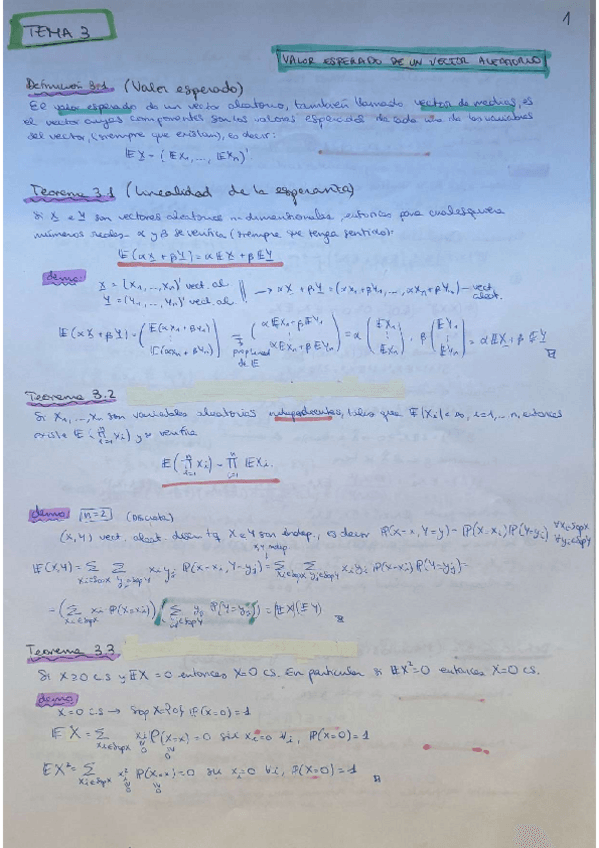 TEMA 3
1
VALOR ESPERADO DE UN VECTOR ALEATORIO
Definición 3.1 (Valor esperado)
El valor esperado de un vector aleatorio, también llamado vector de medias, es
el vector cuyas componentes son los valores esperados de cada una de las variables
del vector, (siempre que existan), es decir:
EX = (EX₁, ..., EXₙ)'
Teorema 3.1 (Linealidad de la esperanza)
Si X e Y son vectores aleatorios n-dimensionales, entonces para cualesquiera
números reales α y β se verifica (siempre que tenga sentido):
E(αX + βY) = αEX + βEY
demo:
X = (X₁, ..., Xₙ)' vect. al.
Y = (Y₁, ..., Yₙ)' vect. al.
→ αX + βY = (αX₁ + βY₁, ..., αXₙ + βYₙ) - vect. aleat.
E(αX + βY) = (E(αX₁ + βY₁) ⋮ E(αXₙ + βYₙ)) = (αEX₁ + βEY₁ ⋮ αEXₙ + βEYₙ) = α(EX₁ ⋮ EXₙ) + β(EY₁ ⋮ EYₙ) = αEX + βEY
propiedad
de E
Teorema 3.2
Si X₁, ..., Xₙ son variables aleatorias independientes, tales que E|Xᵢ| < ∞, i=1, ... n, entonces
existe E(∏ Xᵢ) y se verifica
E(∏ Xᵢ) = ∏ EXᵢ.
demo: n=2 (Discreta)
(X,Y) vect. aleat. discr. tq X e Y son indep., es decir P(X=x, Y=y) = P(X=xᵢ)P(Y=yⱼ) ∀xᵢ∈SopX
∀yⱼ∈SopY
X, Y indep.
E(X,Y) = Σ Σ xᵢ yⱼ P(X=xᵢ, Y=yⱼ) = Σ Σ xᵢ yⱼ P(X=xᵢ)P(Y=yⱼ) =
xᵢ∈SopX yⱼ∈SopY xᵢ∈SopX yⱼ∈SopY
= (Σ xᵢ P(X=xᵢ)) (Σ yⱼ P(Y=yⱼ)) = (EX)(EY)
xᵢ∈SopX yⱼ∈SopY
Teorema 3.3
Si X≥0 c.s y EX = 0 entonces X=0 cs. En particular si EX²=0 entonces X=0 cs.
demo
X=0 c.s → Sop X={0} P(X=0)=1
EX = Σ xᵢ P(X=x) = 0 xᵢ=0 ∀i, P(X=0)=1
xᵢ∈SopX
EX² = Σ xᵢ² P(X=x) = 0 xᵢ=0 ∀i, P(X=0)=1
xᵢ∈SopX